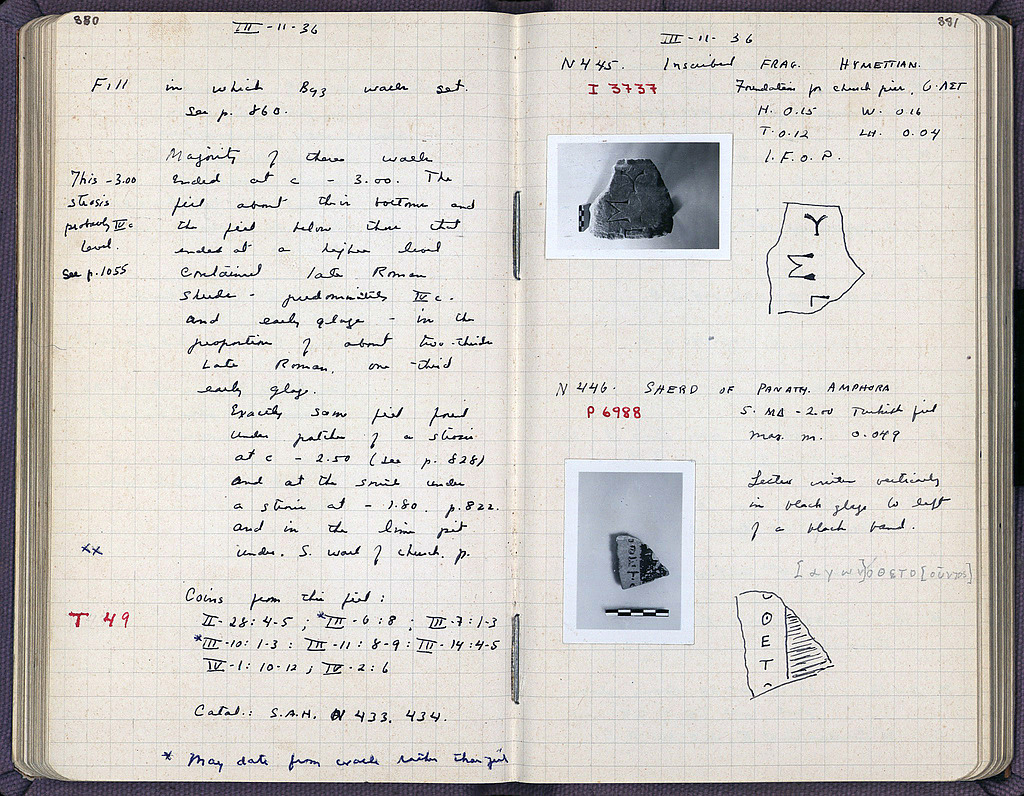 880
III-11-36
Fill in which B93 walls set.
See p. 860.
Majority of these walls
ended at c - 3.00. The
fill about their bottoms and
the fill below those that
ended at a higher level
contained late Roman
sherds - predominately IV c.
and early glaze - in the
proportion of about two-thirds
Late Roman, one-third
early glaze.
This -3.00
strosis
probably IV c
level.
See p. 1055
Exactly same fill found
under patches of a strosis
at c - 2.50 (see p. 828)
and at the south under
a strosis at - 1.80. p. 822.
and in the lime pit
under S. wall of church. p.
xx
T 49
Coins from this fill:
II-28: 4-5; *III-6:8; III-7:1-3
*III-10:1-3: III-11:8-9: III-14:4-5
IV-1: 10-12; IV-2:6
Catal.: S.A.H. N 433. 434.
* May date from walls rather than fill
881
III-11-36
N 445. Inscribed FRAG. HYMETTIAN.
I 3737
Foundations for church pier,
H. 0.15 W. 0.16
T. 0.12 LH. 0.04
I.F.O.P.
Υ
Σ
N 446. SHERD OF PANATH. AMPHORA
P 6988
S. ΜΔ -2.00 Turkish fill
max. m. 0.049
Letters written vertically
in black glaze to left
of a black band.
[αγων]οθετο[ουντος]
Ο
Ε
Τ